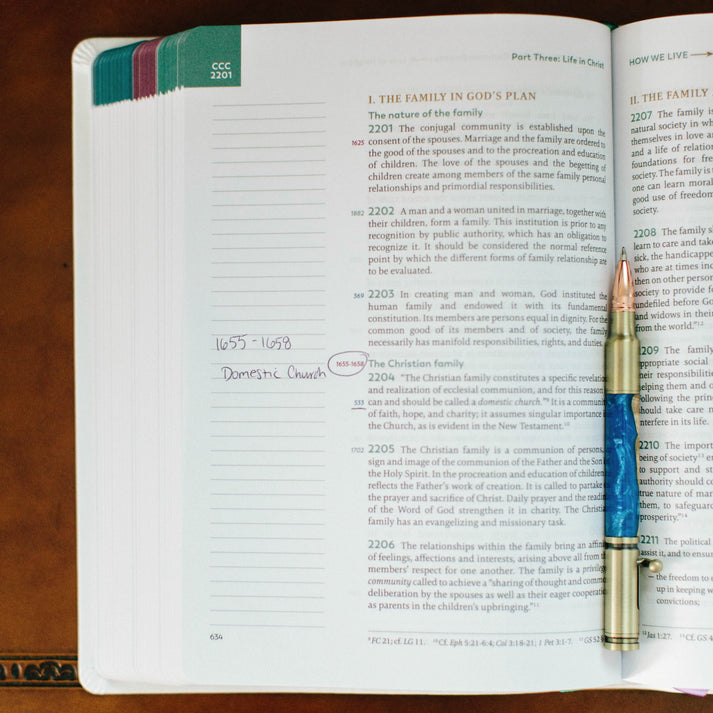 CCC
2201
Part Three: Life in Christ
I. THE FAMILY IN GOD'S PLAN
The nature of the family
2201 The conjugal community is established upon the
1625 consent of the spouses. Marriage and the family are ordered to
the good of the spouses and to the procreation and education
of children. The love of the spouses and the begetting of
children create among members of the same family personal
relationships and primordial responsibilities.
1882 2202 A man and a woman united in marriage, together with
their children, form a family. This institution is prior to any
recognition by public authority, which has an obligation to
recognize it. It should be considered the normal reference
point by which the different forms of family relationship are
to be evaluated.
369 2203 In creating man and woman, God instituted the
human family and endowed it with its fundamental
constitution. Its members are persons equal in dignity. For the
common good of its members and of society, the family
necessarily has manifold responsibilities, rights, and duties.
1655-1658
Domestic Church
1655-1658 The Christian family
2204 "The Christian family constitutes a specific revelation
and realization of ecclesial communion, and for this reason
533 can and should be called a domestic church."9 It is a community
of faith, hope, and charity; it assumes singular importance in
the Church, as is evident in the New Testament.10
1702 2205 The Christian family is a communion of persons,
sign and image of the communion of the Father and the Son
the Holy Spirit. In the procreation and education of children
reflects the Father's work of creation. It is called to partake
the prayer and sacrifice of Christ. Daily prayer and the
of the Word of God strengthen it in charity. The Christian
family has an evangelizing and missionary task.
2206 The relationships within the family bring an
of feelings, affections and interests, arising above all from
members' respect for one another. The family is a
community called to achieve a "sharing of thought and
deliberation by the spouses as well as their eager
as parents in the children's upbringing."11
634
9 FC 21; cf. LG 11. 10 Cf. Eph 5:21-6:4; Col 3:18-21; 1 Pet 3:1-7. 11 GS 52
HOW WE LIVE
II. THE FAMILY
2207 The family is
natural society in
themselves in love
and a life of
foundations for
society. The family is
one can learn
good use of
society.
2208 The family
learn to care and
sick, the
who are at times
then on other
society to provide
undefiled before
and widows in their
from the world."12
2209 The family
appropriate social
their responsibilities
helping them and
following the
should take care
interfere in its life.
2210 The
being of society13
to support and
authority should
true nature of
them, to safeguard
prosperity."14
2211 The political
assist it, and to
– the freedom to
up in keeping
convictions;
12 Jas 1:27. 13 Cf. GS